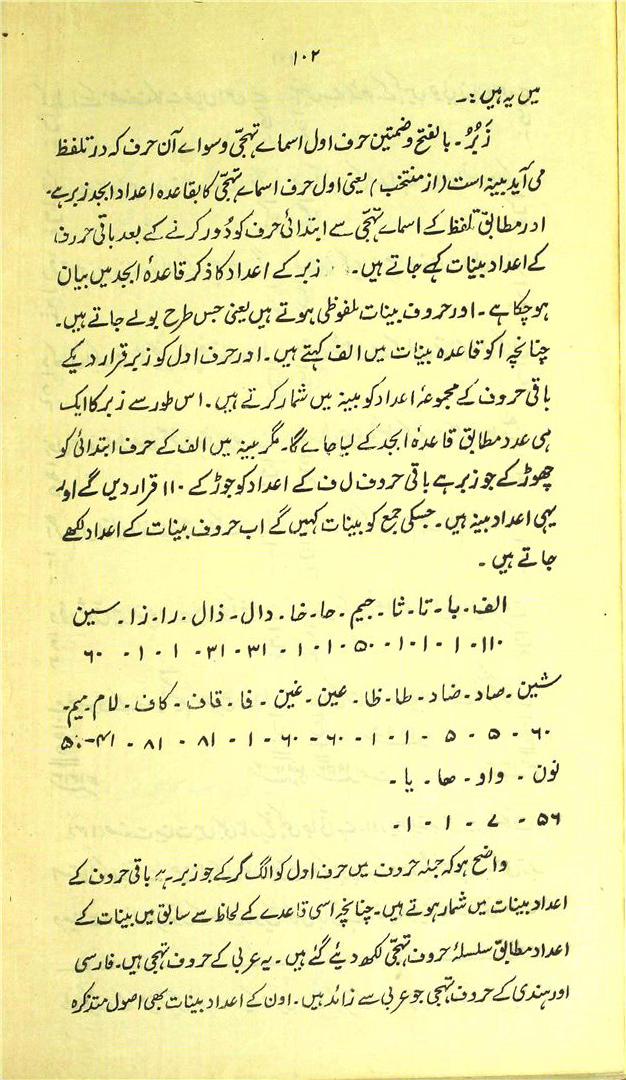 ۱۰۲
میں یہ ہیں :۔
زَبُرُ۔ بالفتح وضمتین حرف اول اسماے تہجّی وسواے آن حرف کہ در تلفظ
می آید بینہ است (از منتخب) یعنی اول حرف اسماے تہجّی کا بقاعدہ اعداد ابجد زبر ہے۔
اور مطابق تلفظ کے اسماے تہجّی سے ابتدائی حرف کو دُور کرنے کے بعد باقی حروف
کے اعداد بینات کہے جاتے ہیں۔ زبر کے اعداد کا ذکر قاعدۂ ابجد میں بیان
ہوچکا ہے۔ اور حروف بینات ملفوظی ہوتے ہیں یعنی جس طرح بولے جاتے ہیں۔
چنانچہ ا کو قاعدہ بیّنات میں الف کہتے ہیں۔ اور حرف اول کو زبر قرار دیکے
باقی حروف کے مجموعۂ اعداد کو بینہ میں شمار کرتے ہیں۔ اس طور سے زبر کا ایک
ہی عدد مطابق قاعدۂ ابجد کے لیا جاے گا۔ مگر بینہ میں الف کے حرف ابتدائی کو
چھوڑ کے جو زبر ہے باقی حروف ل ف کے اعداد کو جوڑ کے ۱۱۰ قرار دیں گے اور
یہی اعداد بینہ ہیں۔ جسکی جمع کو بینات کہیں گے اب حروف بینات کے اعداد لکھے
جاتے ہیں ۔
الف۔ با۔ تا۔ ثا۔ جیم۔ حا۔ خا۔ دال۔ ذال۔ را۔ زا۔ سین
۱۱۰۔ ۱ ۔ ۱ ۔ ۱ ۔ ۵۰ ۔ ۱ ۔ ۱ ۔ ۳۱ ۔ ۳۱ ۔ ۱ ۔ ۱ ۔ ۶۰
شین۔ صاد۔ ضاد۔ طا۔ ظا۔ عین۔ غین۔ فا۔ قاف۔ کاف۔ لام۔ میم۔
۶۰ ۔ ۵ ۔ ۵ ۔ ۱ ۔ ۱ ۔ ۶۰ ۔ ۶۰ ۔ ۱ ۔ ۸۱ ۔ ۸۱ ۔ ۴۱ ۔ ۵۰
نون ۔ واو ۔ ھا ۔ یا ۔
۵۶ ۔ ۷ ۔ ۱ ۔ ۱ ۔
واضح ہو کہ جملہ حروف میں حرف اول کو الگ کرکے جو زبر ہے باقی حروف کے
اعداد بینات میں شمار ہوتے ہیں۔ چنانچہ اسی قاعدے کے لحاظ سے سابق میں بینات کے
اعداد مطابق سلسلۂ حروف تہجّی لکھ دیئے گئے ہیں۔ یہ عربی کے حروف تہجی ہیں۔ فارسی
اور ہندی کے حروف تہجی جو عربی سے زائد ہیں۔ اون کے اعداد بینات بھی اصول متذکرہ